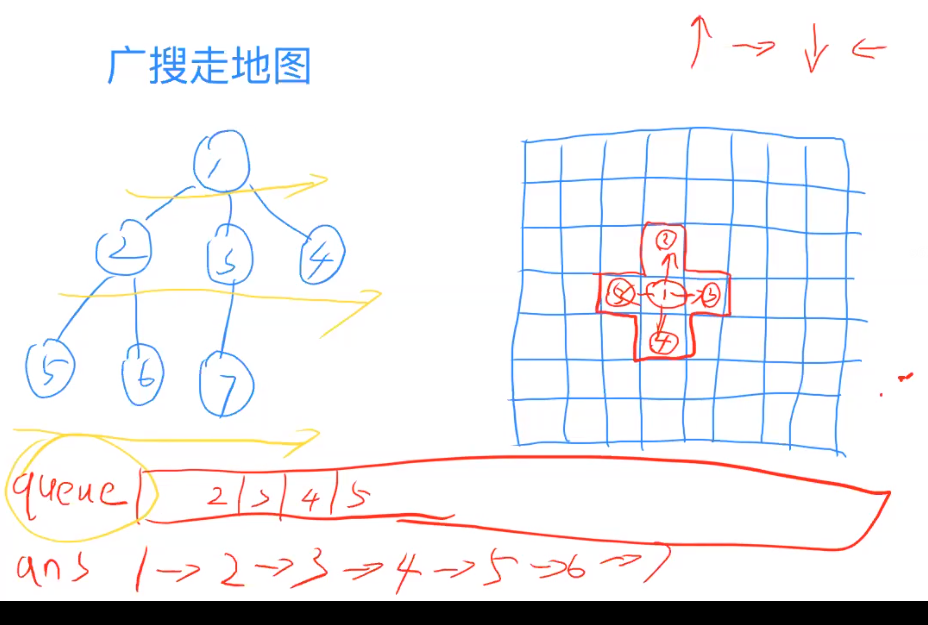 广搜走地图
↑ → ↓ ←
1
2 3 4
5 6 7
2
5 1 3
4
queue 2 3 4 5
ans 1 → 2 → 3 → 4 → 5 → 6 → 7